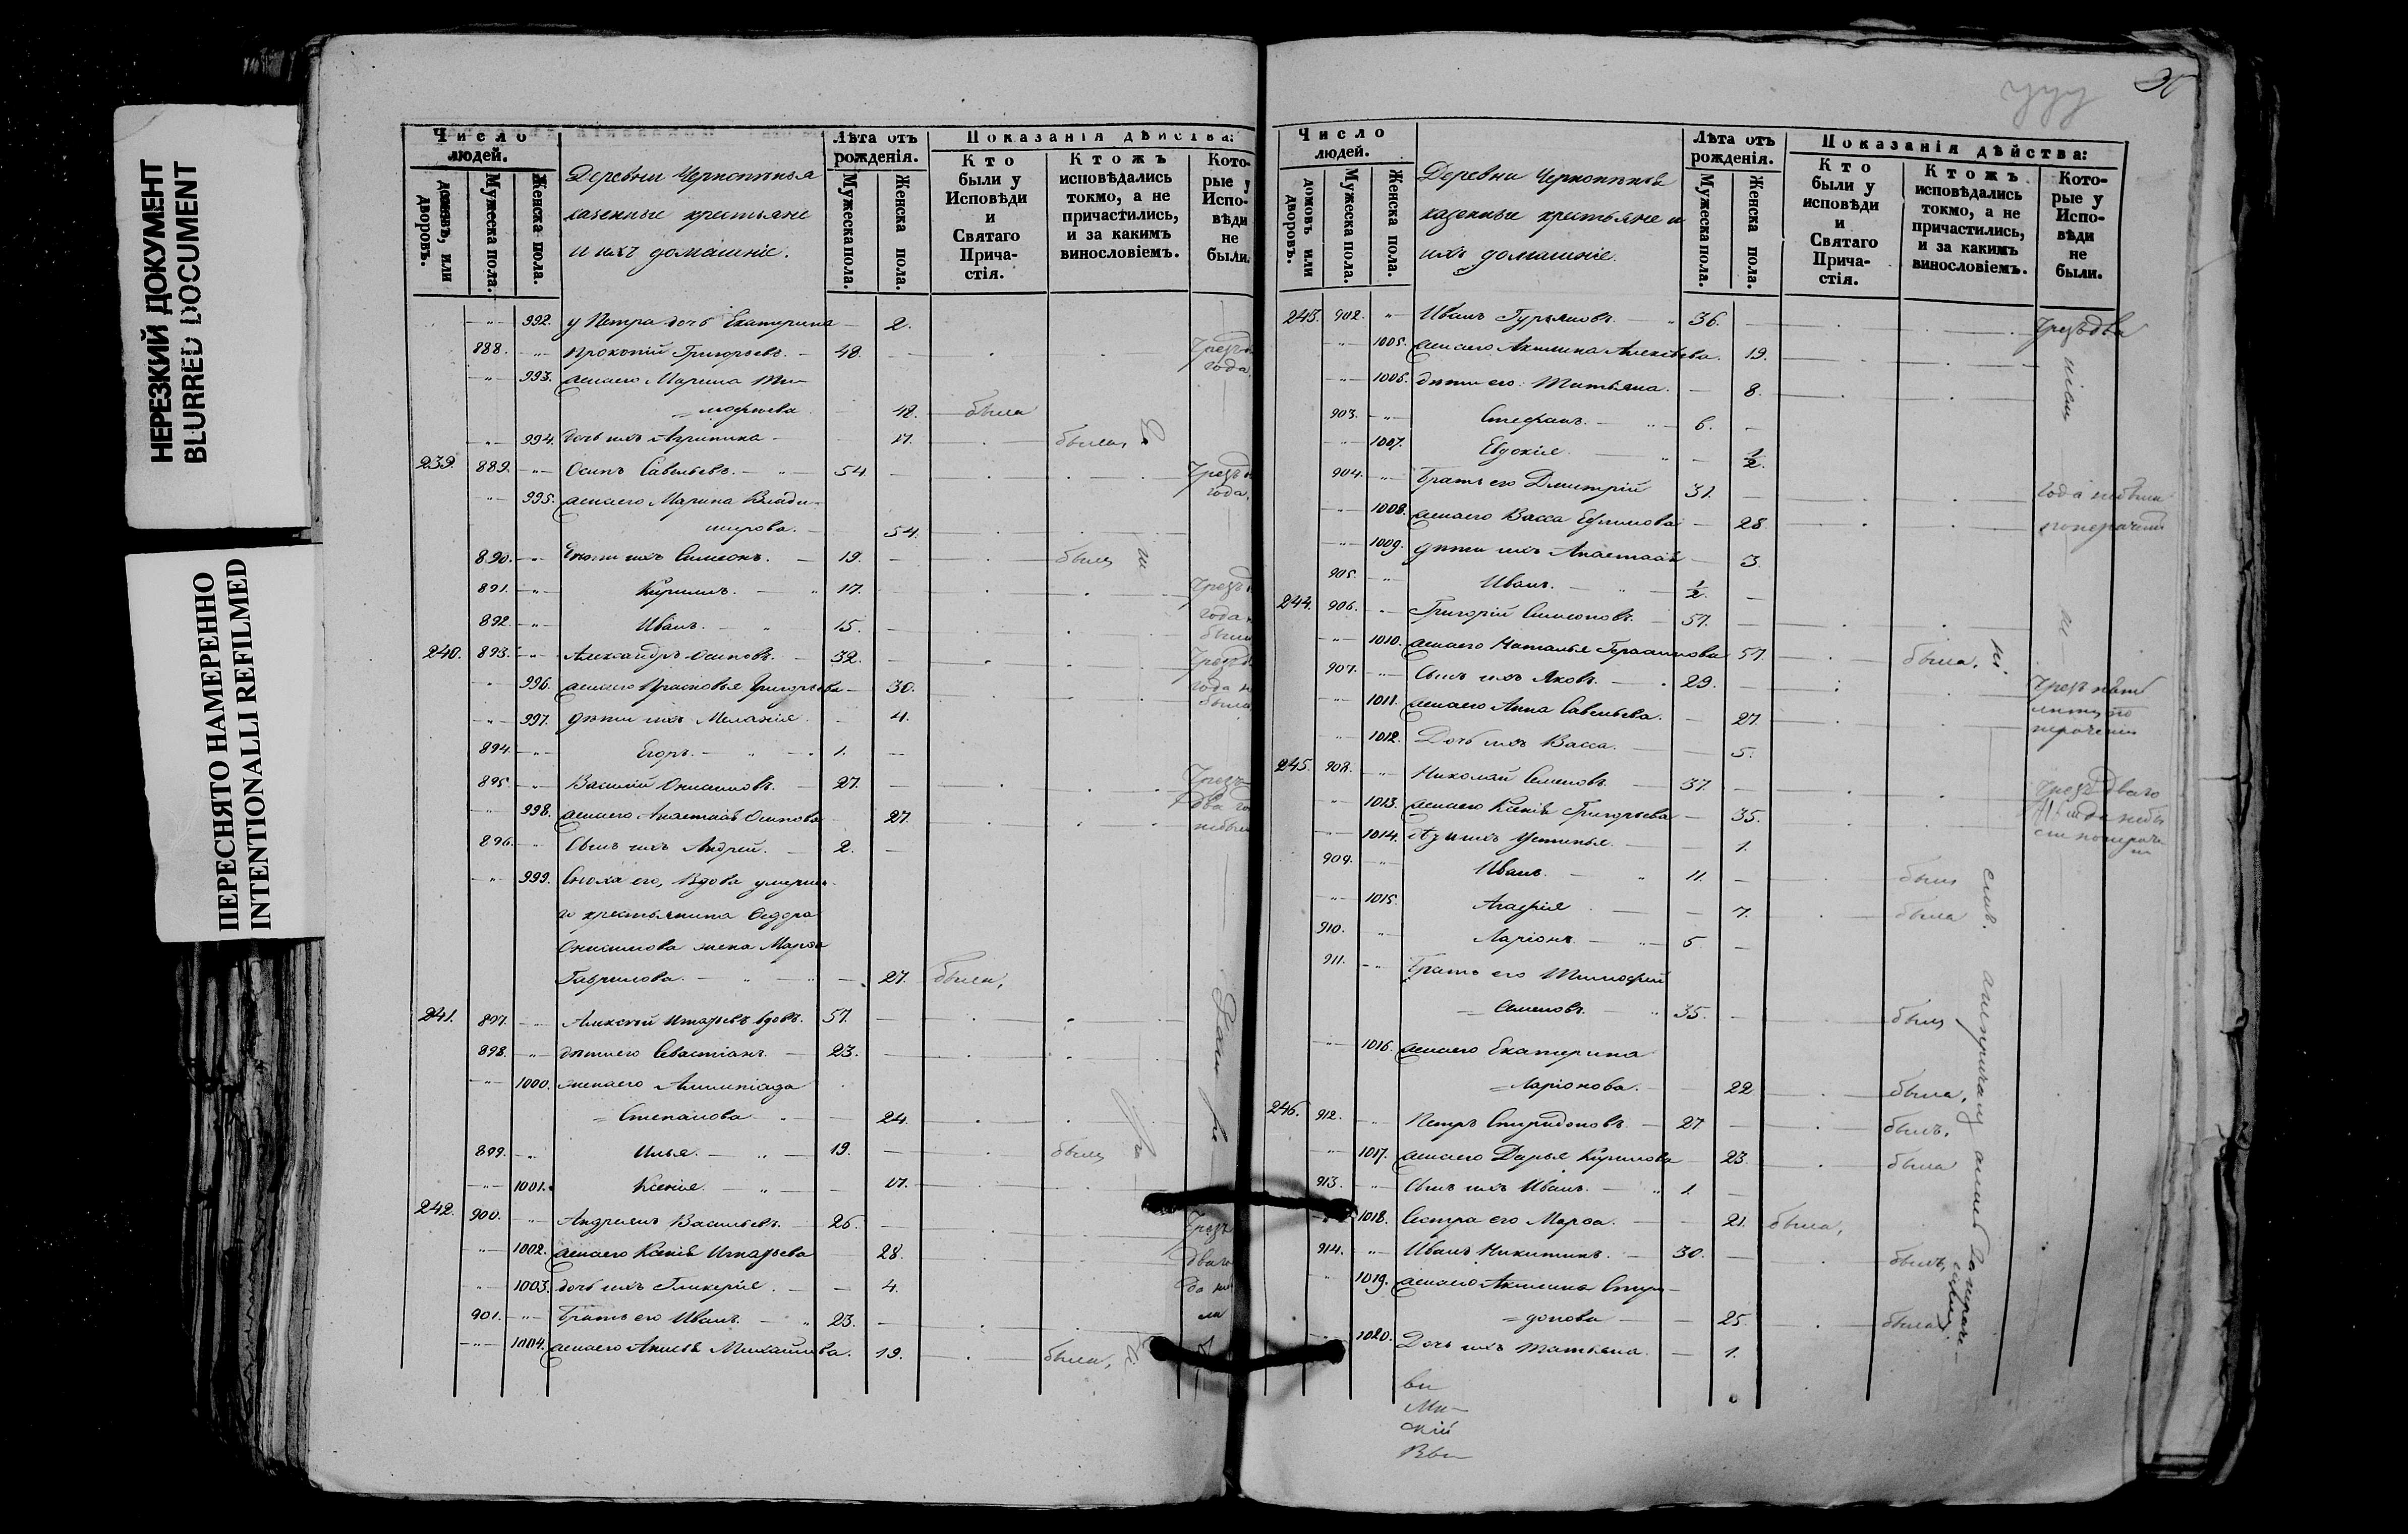 НЕРЕЗКИЙ ДОКУМЕНТ
BLURRED DOCUMENT
ПЕРЕСНЯТО НАМЕРЕННО
INTENTIONALLI REFILMED
Число людей.
домовъ, или дворовъ.
Мужеска пола.
Женска пола.
Деревни
казенные крестьяне
и ихъ домашніе.
Лѣта отъ рожденія.
Мужеска пола.
Женска пола.
Показанія дѣйства:
Кто были у Исповѣди и Святаго Прича-стія.
Ктожъ исповѣдались токмо, а не причастились, и за какимъ винословіемъ.
Кото-рые у Испо-вѣди не были.
992. у Петра дочь Екатерина 2.
888. Прокопій Григорьевъ. 48.
993. жена его Марина Ти-
=мофеева 48. была
994. дочь ихъ Агрипина 17. была,
239. 889. Осипъ Савельевъ. 54
995. жена его Марина Влади-
мирова. 54.
890. дѣти ихъ Симеонъ. 19. былъ
891. Кирилъ. 17.
892. Иванъ. 15.
240. 893. Александръ Осиповъ. 32.
996. жена его Прасковья Григорьева 30.
997. дѣти ихъ Меланія 4.
894. Егоръ. 1.
895. Василій Онисимовъ. 27.
998. жена его Анастасія Осипова 27.
896. Сынъ ихъ Андрей. 2.
999. Сноха его, вдова умерша-
го крестьянина Ѳедора
Онисимова жена Марѳа
Гаврилова. 27. была,
241. 897. Алексѣй Игнатьевъ вдовъ. 57.
898. дѣти его Севастіанъ. 23.
1000. жена его Алимпіада
=Степанова 24.
899. Илья. 19. былъ
1001. Ксенія. 17.
242. 900. Андреянъ Васильевъ. 26.
1002. жена его Ксенія Игнатьева 28.
1003. дочь ихъ Гликерія. 4.
901. Братъ его Иванъ. 23.
1004. жена его Анисья Михайлова. 19. была,
Число людей.
домовъ или дворовъ.
Мужеска пола.
Женска пола.
Деревни
казенные крестьяне и
ихъ домашніе.
Лѣта отъ рожденія.
Мужеска пола.
Женска пола.
Показанія дѣйства:
Кто были у исповѣди и Святаго Прича-стія.
Ктожъ исповѣдались токмо, а не причастились, и за какимъ винословіемъ.
Кото-рые у Испо-вѣди не были.
243. 902. Иванъ Гурьяновъ. 36. Чрезъ два
1005. жена его Акилина Алексѣева. 19.
1006. дѣти его: Татьяна. 8.
903. Стефанъ. 6.
1007. Евдокія 1/2.
904. Братъ его Дмитрій 31.
1008. жена его Васса Ефимова 28
1009. дѣти ихъ Анастасія 3.
905. Иванъ. 1/2.
244. 906. Григорій Симеоновъ. 57.
1010. жена его Наталья Герасимова 57. была,
907. Сынъ ихъ Яковъ. 29.
1011. жена его Анна Савельева. 27.
1012. Дочь ихъ Васса. 5.
245. 908. Николай Семеновъ. 37.
1013. жена его Ксенія Григорьева 35.
1014. дѣти ихъ Устинья. 1.
909. Иванъ. 11. былъ
1015. Агафія 7. была
910. Ларіонъ. 5
911. Братъ его Тимофей
=Семеновъ. 35. былъ
1016. жена его Екатерина
=Ларіонова. 22 была,
246. 912. Петръ Спиридоновъ. 27 былъ,
1017. жена его Дарья Кирилова 23 была
913. Сынъ ихъ Иванъ. 1.
1018. Сестра его Марѳа. 21. была,
914. Иванъ Никитинъ. 30. былъ,
1019. жена его Акилина Спири-
=донова 25 была
1020. Дочь ихъ Татьяна. 1.